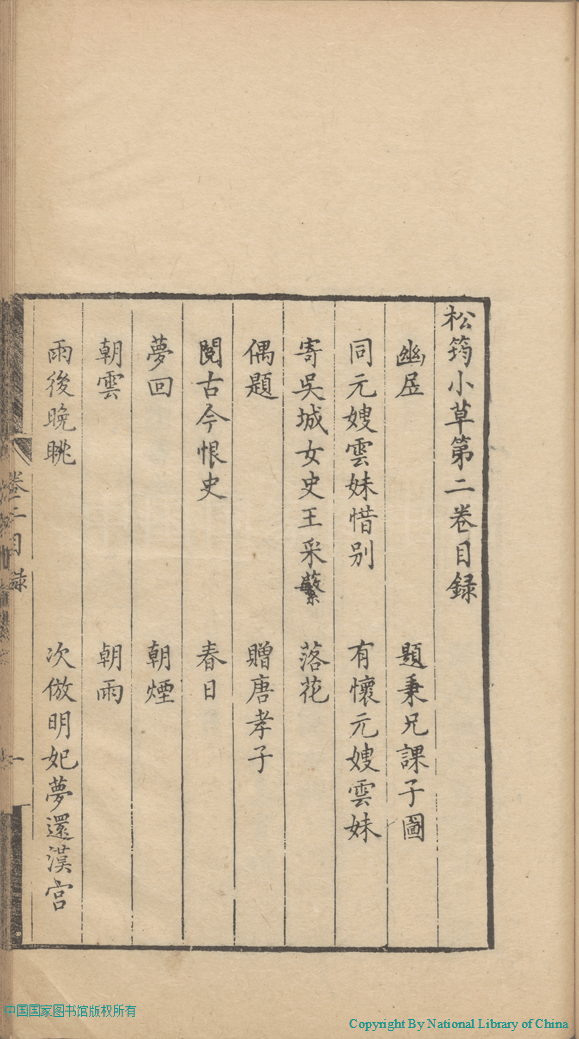 松筠小草第二卷目録
幽居 題秉兄課子圖
同元嫂雲妹惜别 有懷元嫂雲妹
寄吳城女史王采蘩 落花
偶題 贈唐孝子
閱古今恨史 春日
夢回 朝煙
朝雲 朝雨
雨後晚眺 次倣明妃夢還漢宮
卷二目録
一
中国国家图书馆版权所有
Copyright By National Library of China